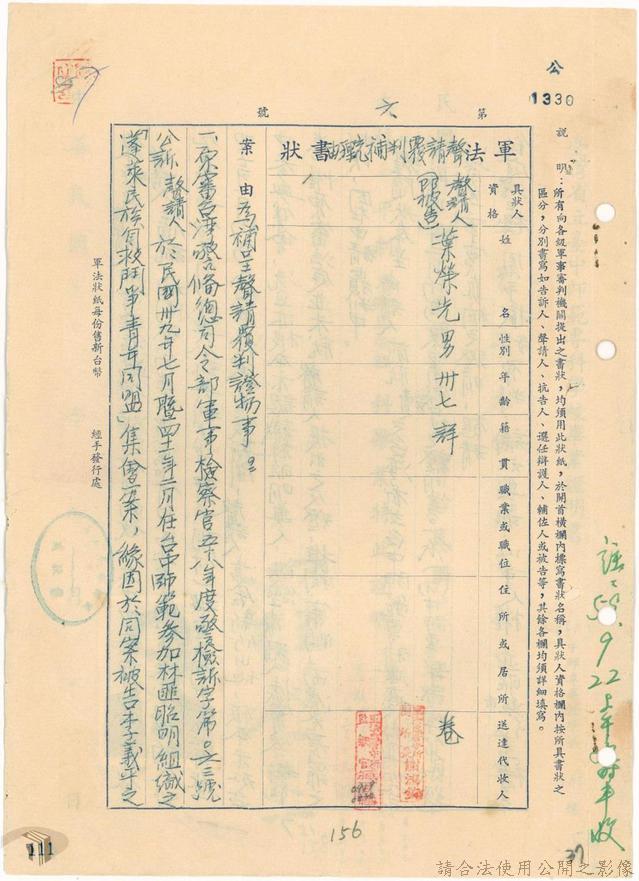 公
1330
說明：所有向各級軍事審判機關提出之書狀，均須用此狀紙，於開首橫欄內標寫書狀名稱，具狀人資格欄內按所具書狀之
區分，分別書寫如告訴人、聲請人、抗告人、選任辯護人、輔佐人或被告等，其餘各欄均須詳細填寫。
第 六 號
軍法聲請覆判補充理由書狀
具狀人 資格 姓名 性別 年齡 籍貫 職業或職位 住所或居所 送達代收人
聲請人 即被告 葉榮光 男 卅七 詳 卷
案由 為補呈聲請覆判證物事：
一、原審台灣警備總司令部軍事檢察官五十八年度警檢訴字第〇六三號
公訴聲請人於民國卅九年七月暨四十一年二月在台中師範參加林匪昭明組織之
「蓬萊民族自救鬥爭青年同盟」集會一案，緣因於同案被告李義平之
軍法狀紙每份售新台幣 經手發行處
59.9.22上午
156
37
111
請合法使用公開之影像